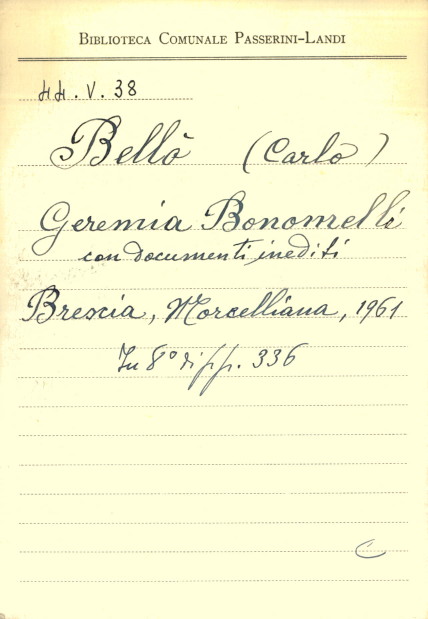 BIBLIOTECA COMUNALE PASSERINI-LANDI
44.V.38
Bellò (Carlo)
Geremia Bonomelli
con documenti inediti
Brescia, Morcelliana, 1961
In 8° di pp. 336
C